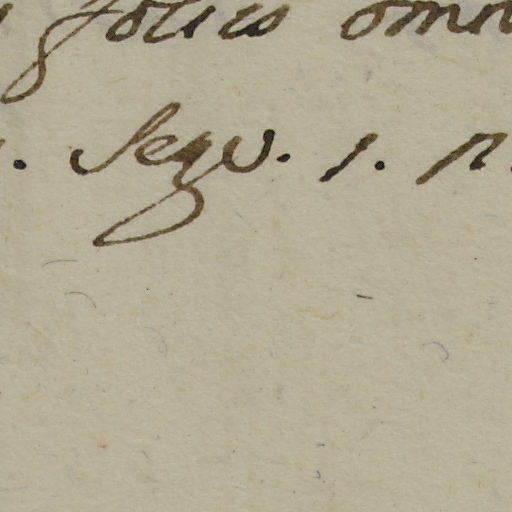 foliis omn
. Seqv. 1. n